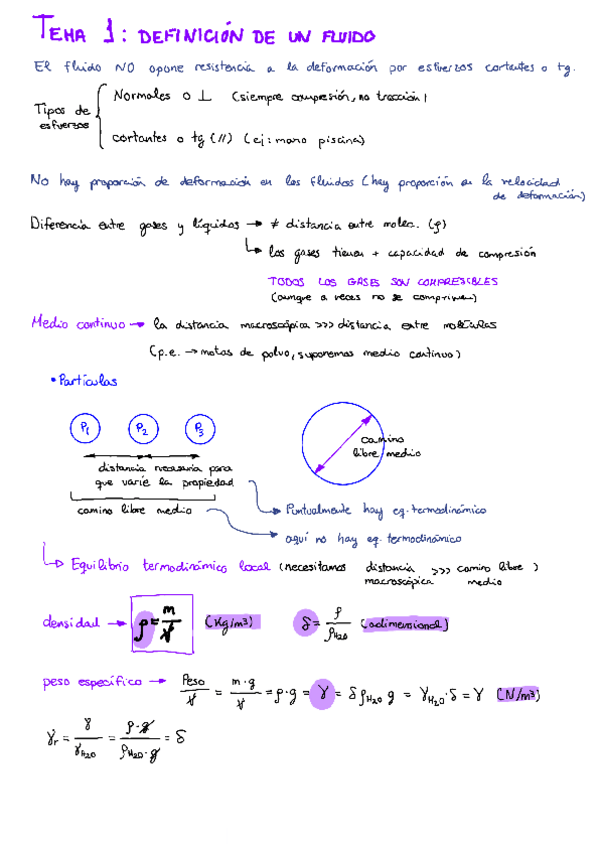 TEMA 1: DEFINICIÓN DE UN FLUIDO
El fluido NO opone resistencia a la deformación por esfuerzos cortantes o tg.
Tipos de esfuerzos
Normales o ⊥ (siempre compresión, no tracción)
cortantes o tg (//) (ej: mano piscina)
No hay proporción de deformación en los fluidos (hay proporción en la velocidad
de deformación)
Diferencia entre gases y líquidos → ≠ distancia entre molec. (ρ)
↳ los gases tienen + capacidad de compresión
TODOS LOS GASES SON COMPRESIBLES
(aunque a veces no se comprimen)
Medio continuo → la distancia macroscópica >>> distancia entre moléculas
(p.e. → motas de polvo, suponemos medio continuo)
• Partículas
P1 P2 P3
camino
libre medio
distancia necesaria para
que varíe la propiedad
camino libre medio
Puntualmente hay eq. termodinámico
aquí no hay eq. termodinámico
↳ Equilibrio termodinámico local (necesitamos distancia macroscópica >>> camino libre medio)
densidad → ρ = m/V (Kg/m³) δ = ρ/ρH2O (adimensional)
peso específico → Peso/V = m·g/V = ρ·g = γ = δ ρH2O g = γH2O·δ = γ (N/m³)
γr = γ/γH2O = ρ·g/ρH2O·g = δ